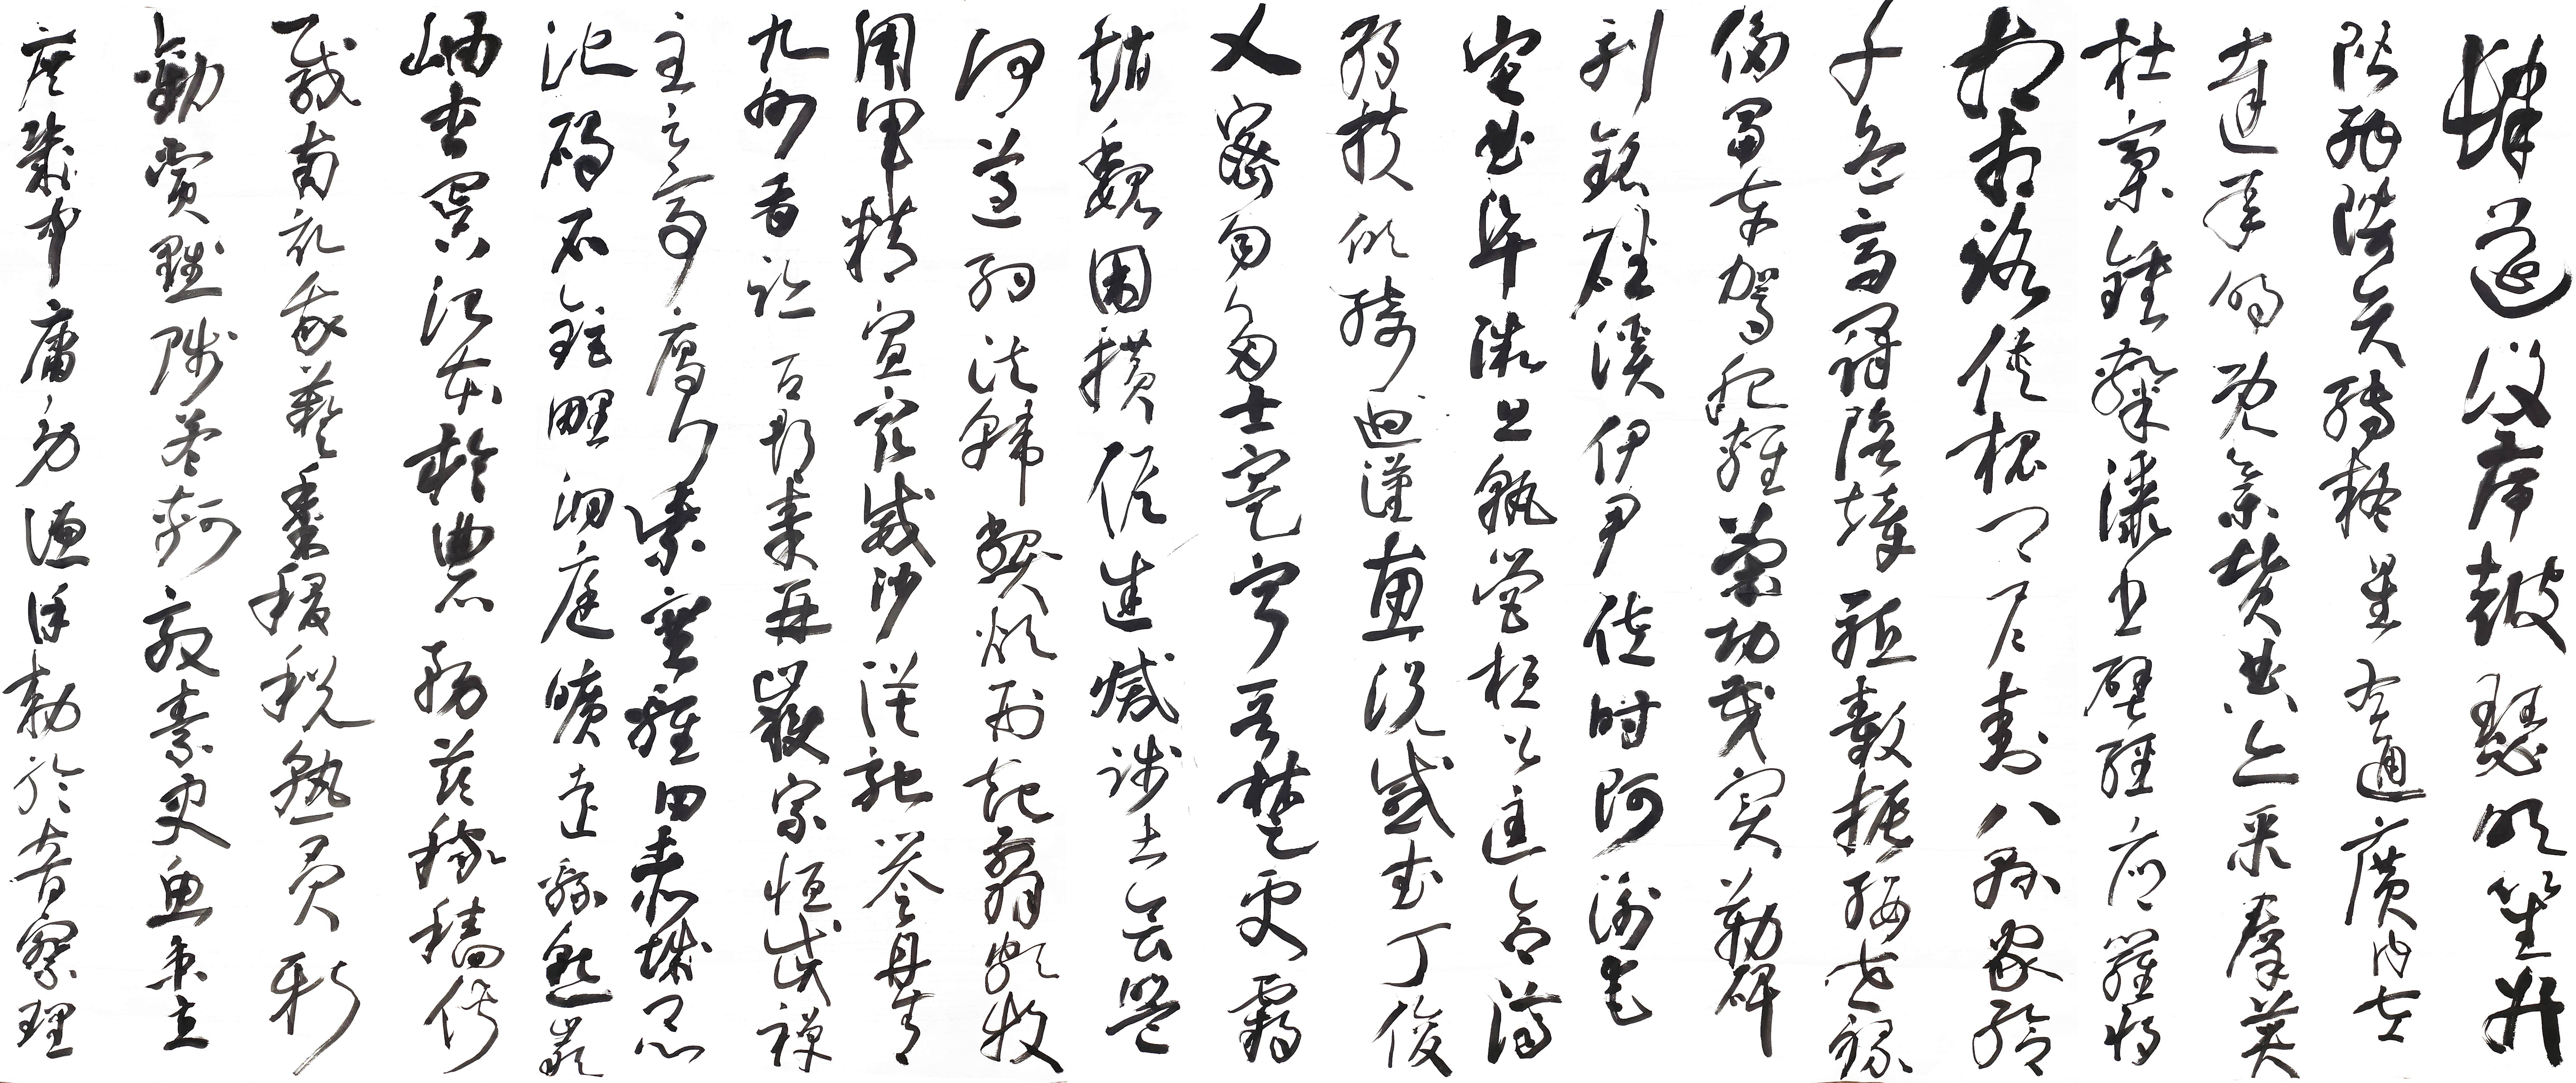 肆筵設席鼓瑟吹笙升
階納陛弁轉疑星右通廣內左
達承明既集墳典亦聚群英
杜稿鍾隸漆書壁經府羅將
相相路俠槐卿戶封八縣家給
千兵高冠陪輦驅轂振纓世祿
侈富車駕肥輕策功茂實勒碑
刻銘磻溪伊尹佐時阿衡奄
宅曲阜微旦孰營桓公匡合濟
弱扶傾綺迴漢惠說感武丁俊
乂密勿多士寔寧晉楚更霸
趙魏困橫假途滅踐土會盟
何遵約法韓弊煩刑起翦頗牧
用軍精宣威沙漠馳譽丹青
九州禹跡百郡秦并嶽宗恆岱禪
主云亭雁門紫塞雞田赤城昆
池碣石鉅野洞庭曠遠綿邈巖
岫杳冥治本於農務茲稼穡俶
載南畝我藝黍稷稅熟貢新
勸賞黜陟孟軻敦素史魚秉直
庶幾中庸勞謙謹敕聆音察理